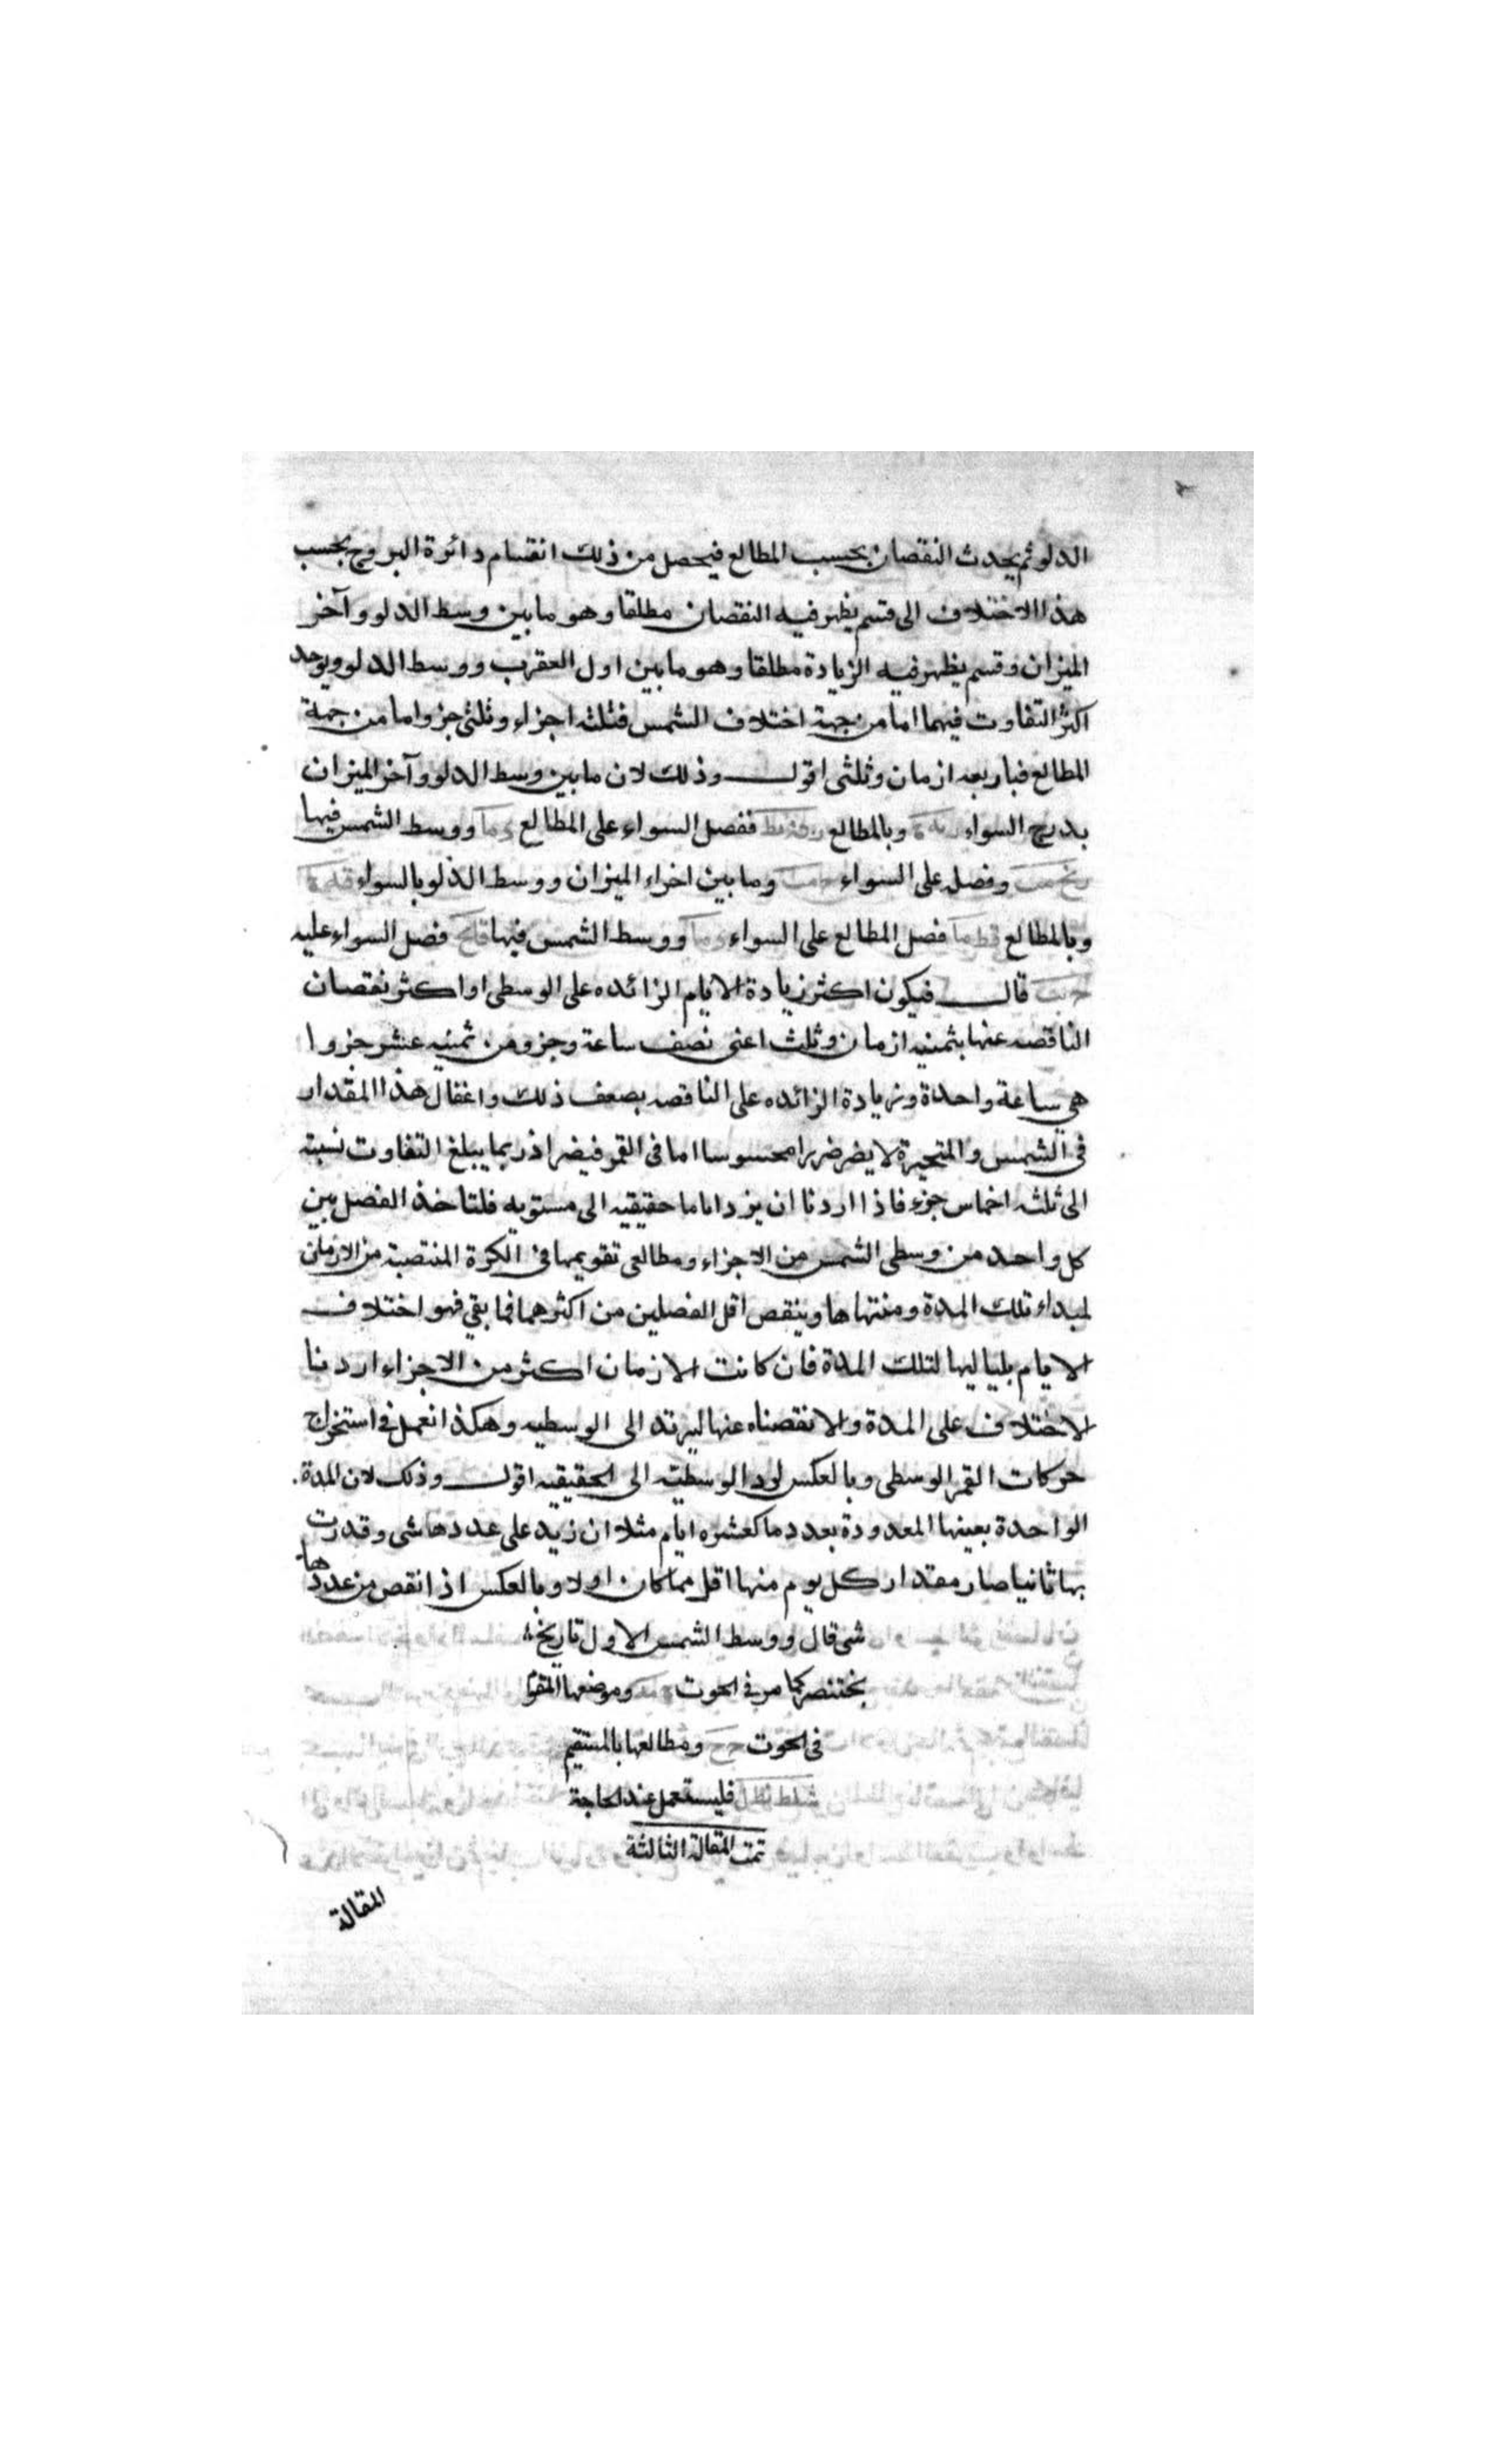 الدلو ثم يحدث النقصان بحسب المطالع فيحصل من ذلك انقسام دائرة البروج بحسب
هذا الاختلاف الى قسم يظهر فيه النقصان مطلقا وهو مابين وسط الدلو وآخر
الميزان وقسم يظهر فيه الزيادة مطلقا وهو مابين اول العقرب ووسط الدلو ويوجد
اكثر التفاوت فيهما اما من جهة اختلاف الشمس فثلثه اجزاء وثلثى جزو واما من جهة
المطالع فباربعه ازمان وثلثى اقول وذلك لان مابين وسط الدلو وآخر الميزان
بدرج السواء وبالمطالع ففصل السواء على المطالع ووسط الشمس فيها
وفصله على السواء ومابين اخراء الميزان ووسط الدلو بالسواء
وبالمطالع فصل المطالع على السواء ووسط الشمس فيها فصل السواء عليه
قال فيكون اكثر زيادة الايام الزائده على الوسطى او اكثر نقصان
الناقصه عنها بثمنيه ازمان وثلث اعنى نصف ساعة وجزو من ثمنيه عشر جزوا
هى ساعة واحدة وزيادة الزائده على الناقصه بضعف ذلك واغفال هذا المقدار
فى الشمس والمتحيرة لا يضر ضررا محسوسا اما فى القمر فيضر اذ ربما يبلغ التفاوت نسبته
الى ثلثه اخماس جزء فاذا اردنا ان يرد اياما حقيقيه الى مستويه فلناخذ الفصل بين
كل واحد من وسطى الشمس من الاجزاء ومطالعى تقويمها فى الكرة المنتصبة من الازمان
لمبداء تلك المدة ومنتهاها وينقص اقل الفصلين من اكثرهما فما بقي فهو اختلاف
الايام بلياليها لتلك المدة فان كانت الازمان اكثر من الاجزاء اردنا
الاختلاف على المدة والا نقصناه عنها ليرتد الى الوسطيه وهكذا نعمل فى استخراج
حركات القمر الوسطى وبالعكس لرد الوسطية الى الحقيقيه اقول وذلك لان المدة
الواحدة بعينها المعدودة بعدد ما كعشره ايام مثلا ان زيد على عددها شى وقدرت
بها ثانيا صار مقدار كل يوم منها اقل مما كان اولا وبالعكس اذا نقص من عددها
شى قال ووسط الشمس الاول تاريخ
بختنصر كما مر فى الحوت وموضعها المقوم
فى الحوت ومطالعها بالمستقيم
فليستعمل عند الحاجة
تمت المقالة الثالثة
المقالة